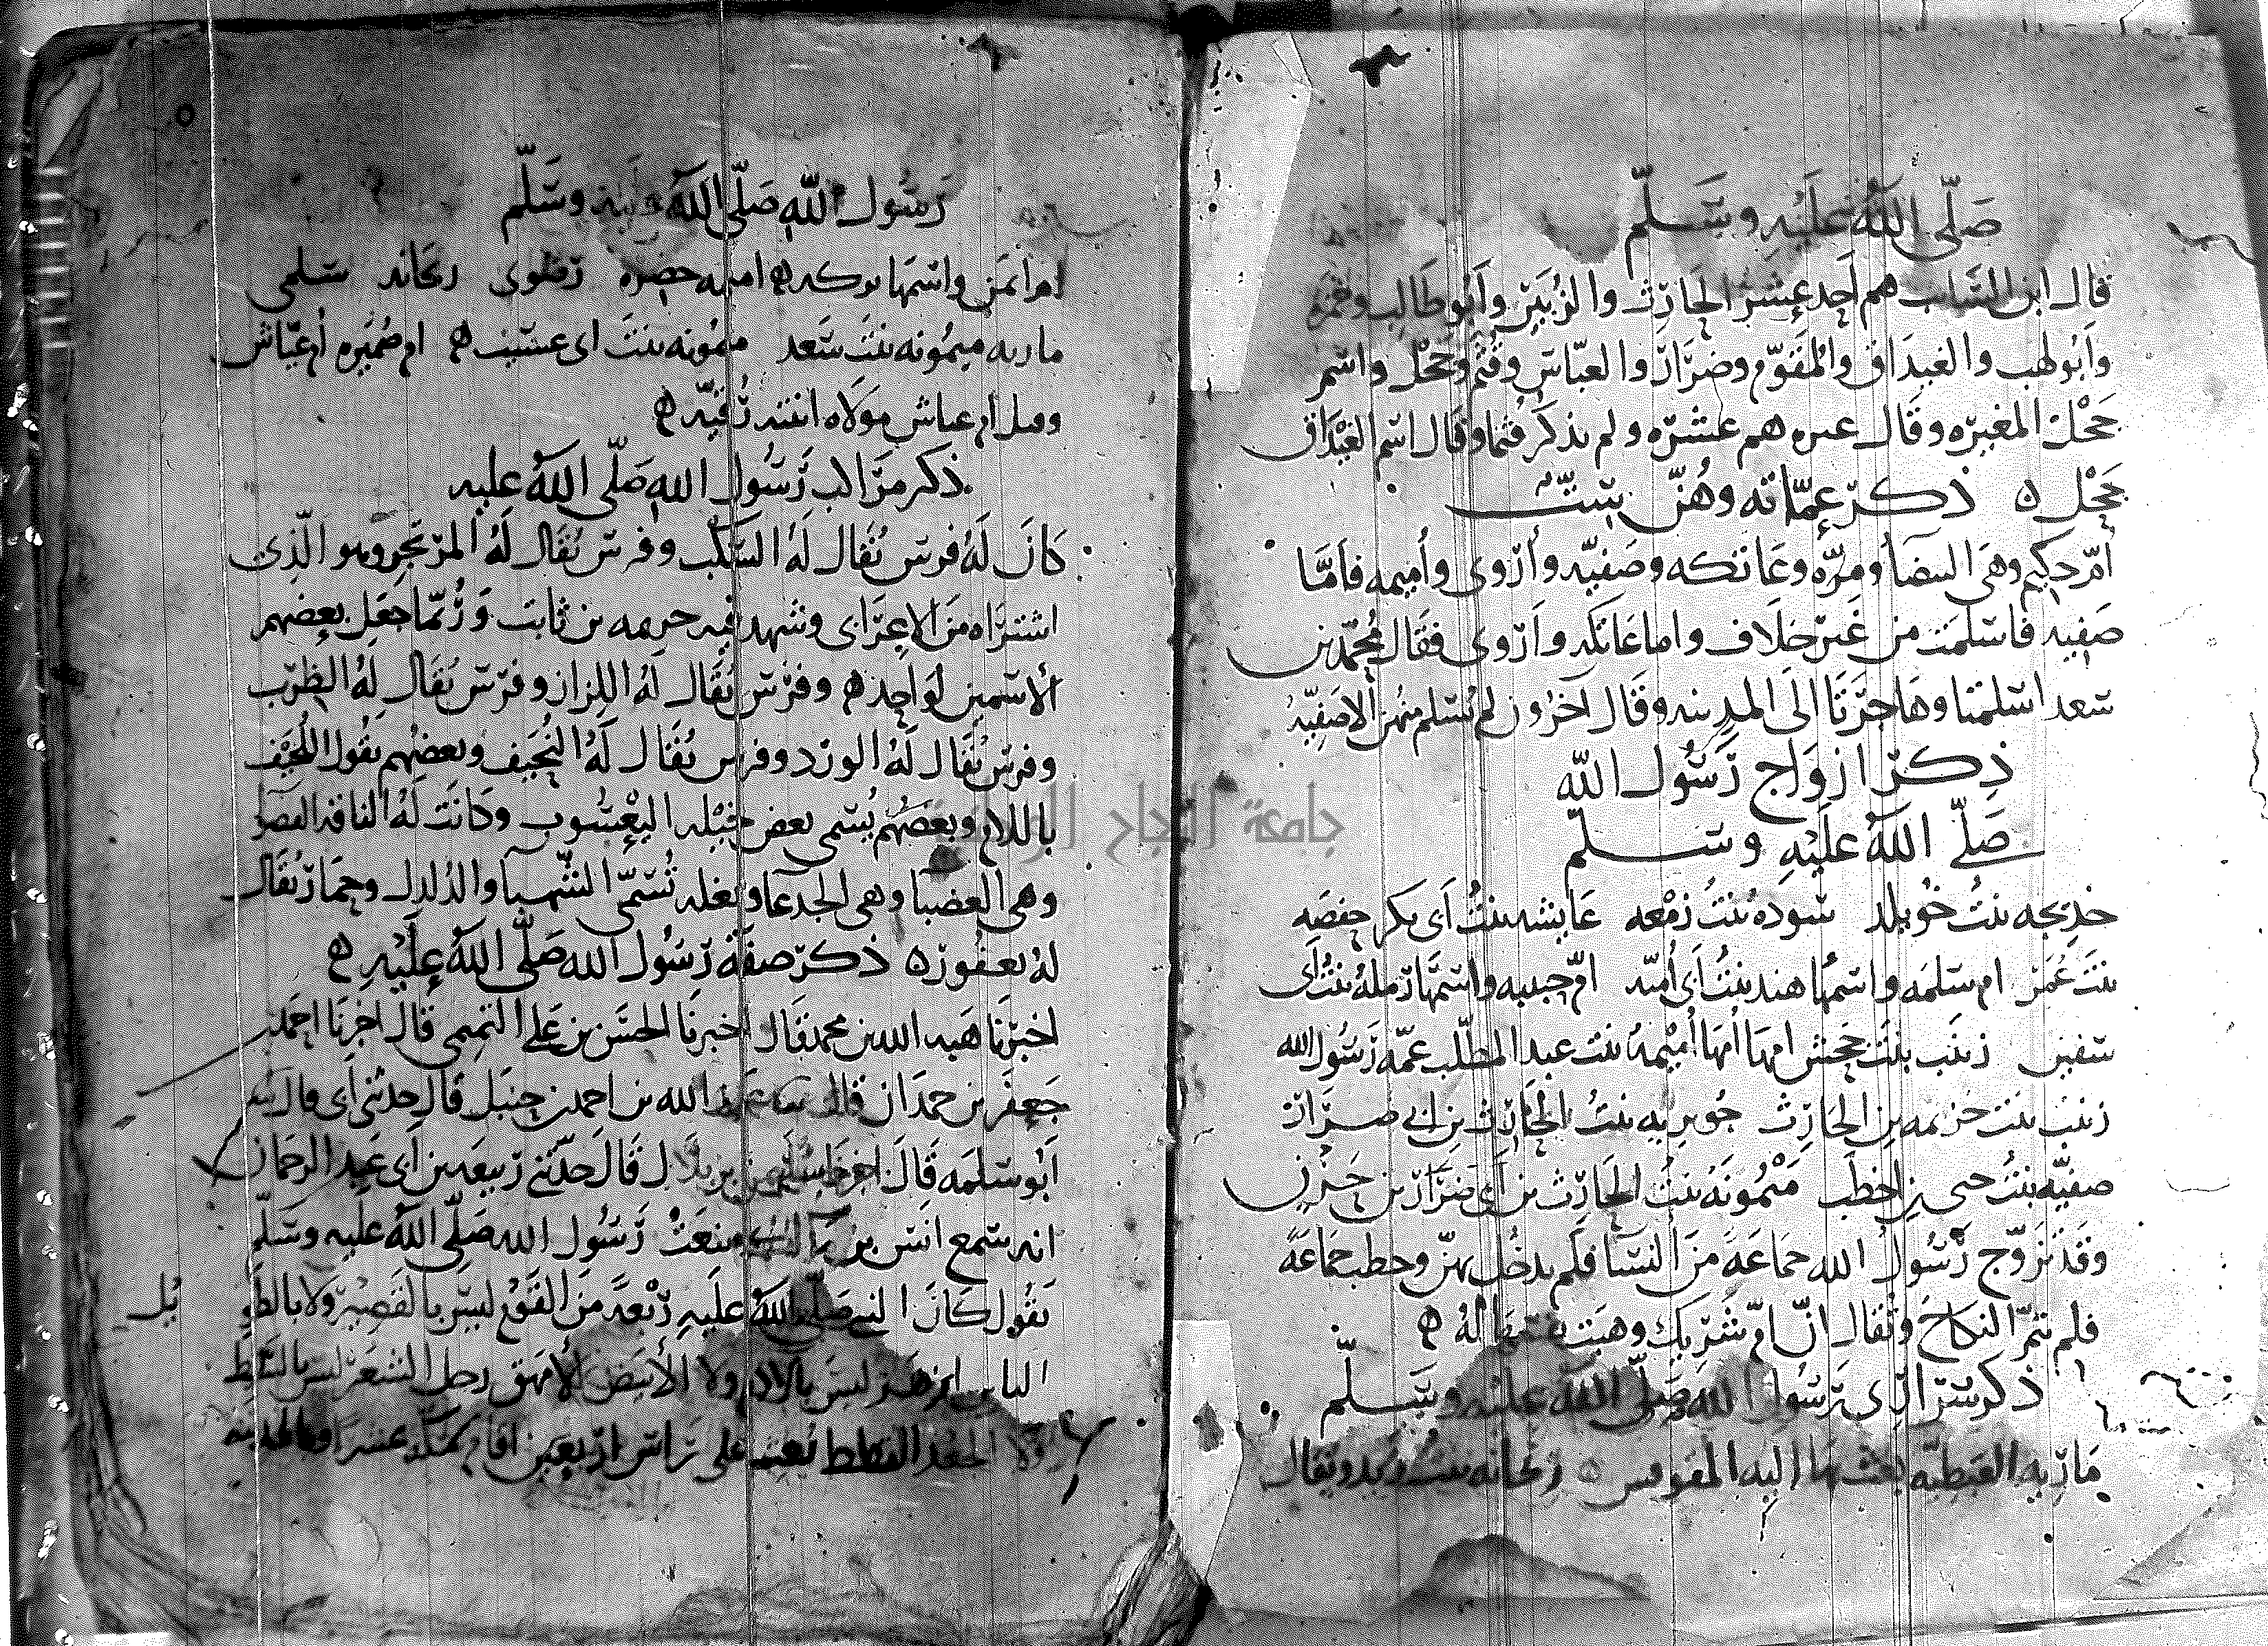 صَلّى اللهُ عَلَيْهِ وسَلّم
قال ابن السائب هم أحد عشر الحارث والزُبَير وأبو طالب وحمزه
وأبو لهب والغيداق والمقوّم وضرار والعبّاس وقُثم وحَجْل واسم
حَجْل المغيره وقال غيره هم عشره ولم يذكر قثما وقال اسم الغَيْدَاق
حَجْل ٥ ذكر عمّاته وهُنّ ستّ
أم حكيم وهى البيضا وبرّه وعاتكه وصفيّه وأروى وأميمه فأمّا
صفيه فأسلمت من غير خلاف واما عاتكه وأروى فقال محمّد بن
سعد اسلمتا وهاجرتا الى المدينه وقال آخرون لم يُسلم منهن الا صفيّه
ذكر ازواج رَسُول الله
صَلّى اللهُ عَلَيهِ وسلّم
خديجه بنتُ خُويلد سوده بنتُ زمْعه عايشه بنتُ أبى بكر حفصه
بنت عُمَر ام سلمه واسمها هند بنتُ أبى أُميّه امّ حبيبه واسمها رمله بنتُ أبى
سفين زينب بنت جحش امها امها أُميْمهُ بنت عبد المطّلب عمّه رَسُول الله
زينب بنت خزيمه بن الحارث جُويريه بنتُ الحارث بن ابى ضرار
صفيّه بنتُ حيى بن اخطب مَيْمُونَهُ بنتُ الحارث بن أبى ضرار بن حَزْن
وقد تزوّج رَسُولُ الله جماعَهً منَ النسا فلم يدخُل بهنّ وخطب جماعَهً
فلم يتمّ النكاحُ ويُقال انّ امّ شريك وهبت نفسها لهُ ه
ذكر سرارى رَسُول الله صَلّى اللهُ عليه وسَلّم
مَاريه القبطيّه بعث بها اليه المقوقس ٥ ريحانه بنت زيد ويقال
رَسُول اللهِ صَلّى اللهُ عليه وسَلّم
ام أيمن واسمها بركه ه اميمه خضره رضوى ريحانه سلمى
ماريه ميمُونه بنت سَعد ميمُونه بنت ابى عسيب ه ام ضُمَيره أم عيّاش
وقيل ام عياش مَولاه ابنته رُقيّه ه
ذكر مرَاكب رَسُول اللهِ صَلّى اللهُ عليه
كانَ لَهُ فرس يُقال لَهُ السّكْب وفرس يُقال لَهُ المرتجز وهو الّذى
اشتراه منَ الاعرابى وشهد فيه خزيمه بن ثابت ورُبّما جعل بعضهم
الاسمين لواحد ه وفرس يُقَال لهُ اللزاز وفرس يُقال لهُ الظرب
وفرس يُقال لَهُ الورد وفرس يُقَال لَهُ النُحَيف وبعضهم يقُول اللُحَيْف
باللام وبَعضُهم يُسمى بعض خَيْله اليَعْسُوب وكانَت لَهُ الناقه القصوا
وهى العضبا وهى الجدعا وبغله تُسمّى الشهبا والدُلدل وحمار يُقال
لهُ يعفُور ٥ ذكر صفَهْ رَسُول الله صَلّى اللهُ عَلَيهِ ه
اخبَرَنا هبه الله بن محمد قال اخبرنا الحسَن بن عَلى التميمى قال اخبرنا احمد بن
جَعفر بن حمدان قال عبد الله بن احمد بن حنبَل قال حدثنى أبى قال
أبو سَلمه قَالَ اخبرنا سليمن بن بلال قَالَ حدّثنى ربيعه بن أبى عَبد الرحمان
انه سَمع انس بن مالك ينعَتُ رَسُول الله صَلّى اللهُ عليه وسَلّم
يَقُول كانَ النبى صَلّى اللهُ علَيهِ رَبْعهً منَ القَوْم ليسَ بالقَصِير ولا بالطو
يل
ليسَ بالادم ولا الأبيَض الأمهَق رجل الشعَر ليسَ بالسَّبط
ولا الجعد القطط بُعِثَ على رأس اربعين اقام بمكه عشرا وبالمدينه